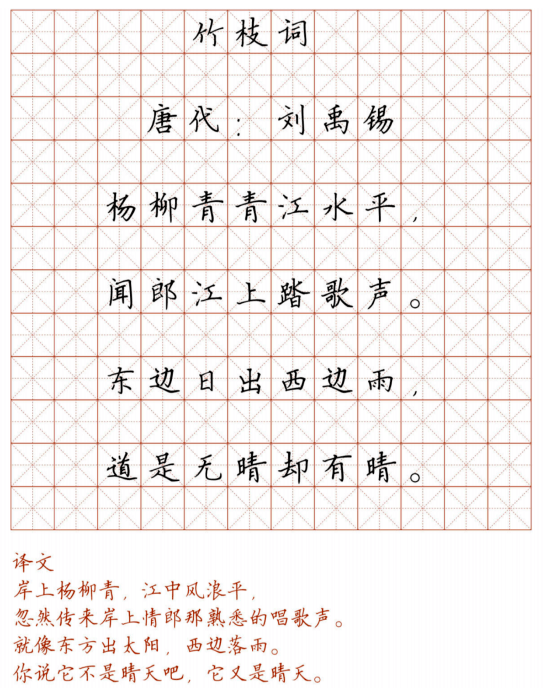 竹枝词
唐代：刘禹锡
杨柳青青江水平，
闻郎江上踏歌声。
东边日出西边雨，
道是无晴却有晴。
译文
岸上杨柳青，江中风浪平，
忽然传来岸上情郎那熟悉的唱歌声。
就像东方出太阳，西边落雨。
你说它不是晴天吧，它又是晴天。